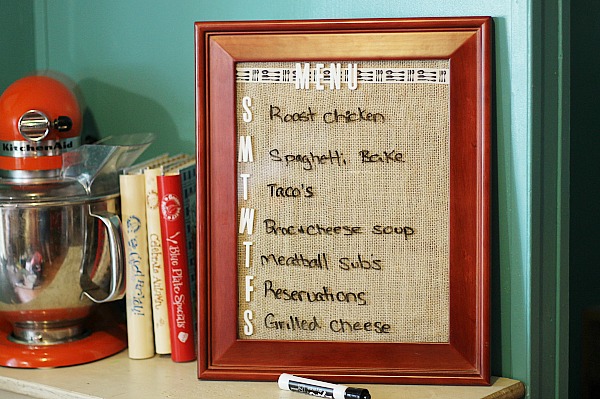 KitchenAid
Celebrate Autumn
Blue Plate Specials
MENU
S Roast Chicken
M Spaghetti Bake
T Taco's
W Broc & cheese soup
T meatball subs
F Reservations
S Grilled cheese